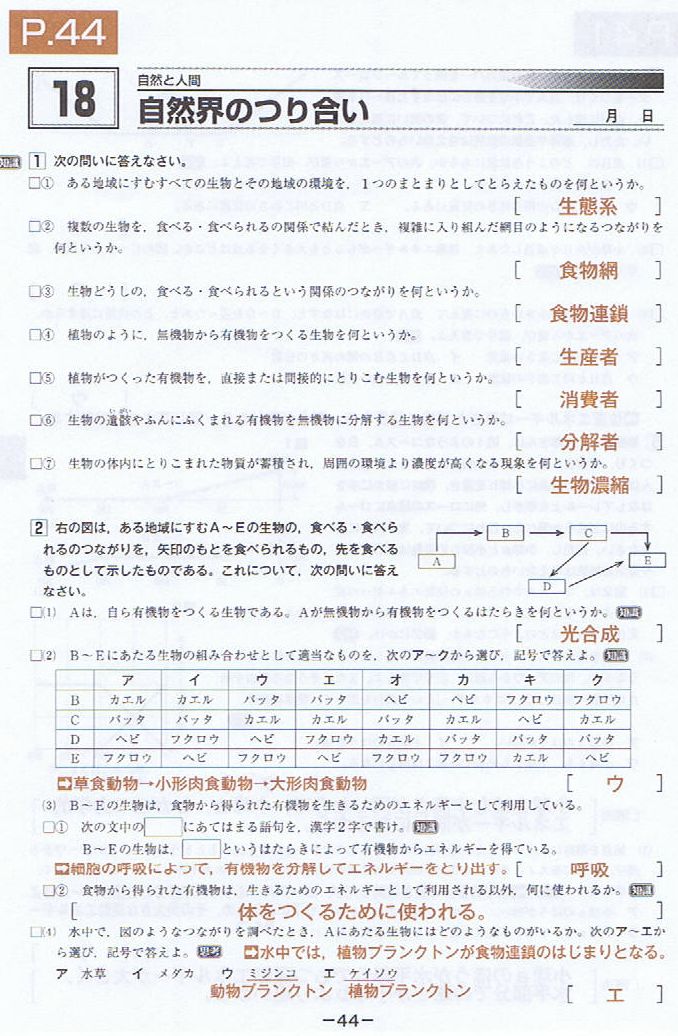 P.44
18
自然と人間
自然界のつり合い
月 日
知識 1 次の問いに答えなさい。
□① ある地域にすむすべての生物とその地域の環境を，1つのまとまりとしてとらえたものを何というか。
[ 生態系 ]
□② 複数の生物を，食べる・食べられるの関係で結んだとき，複雑に入り組んだ網目のようになるつながりを
何というか。
[ 食物網 ]
□③ 生物どうしの，食べる・食べられるという関係のつながりを何というか。
[ 食物連鎖 ]
□④ 植物のように，無機物から有機物をつくる生物を何というか。
[ 生産者 ]
□⑤ 植物がつくった有機物を，直接または間接的にとりこむ生物を何というか。
[ 消費者 ]
□⑥ 生物の遺骸やふんにふくまれる有機物を無機物に分解する生物を何というか。
いがい
[ 分解者 ]
□⑦ 生物の体内にとりこまれた物質が蓄積され，周囲の環境より濃度が高くなる現象を何というか。
[ 生物濃縮 ]
2 右の図は，ある地域にすむA～Eの生物の，食べる・食べら
れるのつながりを，矢印のもとを食べられるもの，先を食べる
ものとして示したものである。これについて，次の問いに答え
なさい。
A B C D E
□(1) Aは，自ら有機物をつくる生物である。Aが無機物から有機物をつくるはたらきを何というか。知識
[ 光合成 ]
□(2) B～Eにあたる生物の組み合わせとして適当なものを，次のア～クから選び，記号で答えよ。知識
ア イ ウ エ オ カ キ ク
B カエル カエル バッタ バッタ ヘビ ヘビ フクロウ フクロウ
C バッタ バッタ カエル カエル バッタ カエル ヘビ カエル
D ヘビ フクロウ ヘビ フクロウ カエル バッタ バッタ バッタ
E フクロウ ヘビ フクロウ ヘビ フクロウ フクロウ カエル ヘビ
➡草食動物→小形肉食動物→大形肉食動物 [ ウ ]
(3) B～Eの生物は，食物から得られた有機物を生きるためのエネルギーとして利用している。
□① 次の文中の□にあてはまる語句を，漢字2字で書け。知識
B～Eの生物は，□というはたらきによって有機物からエネルギーを得ている。
➡細胞の呼吸によって，有機物を分解してエネルギーをとり出す。[ 呼吸 ]
□② 食物から得られた有機物は，生きるためのエネルギーとして利用される以外，何に使われるか。知識
[ 体をつくるために使われる。 ]
□(4) 水中で，図のようなつながりを調べたとき，Aにあたる生物にはどのようなものがいるか。次のア～エか
ら選び，記号で答えよ。思考 ➡水中では，植物プランクトンが食物連鎖のはじまりとなる。
ア 水草 イ メダカ ウ ミジンコ エ ケイソウ
動物プランクトン 植物プランクトン [ エ ]
－44－